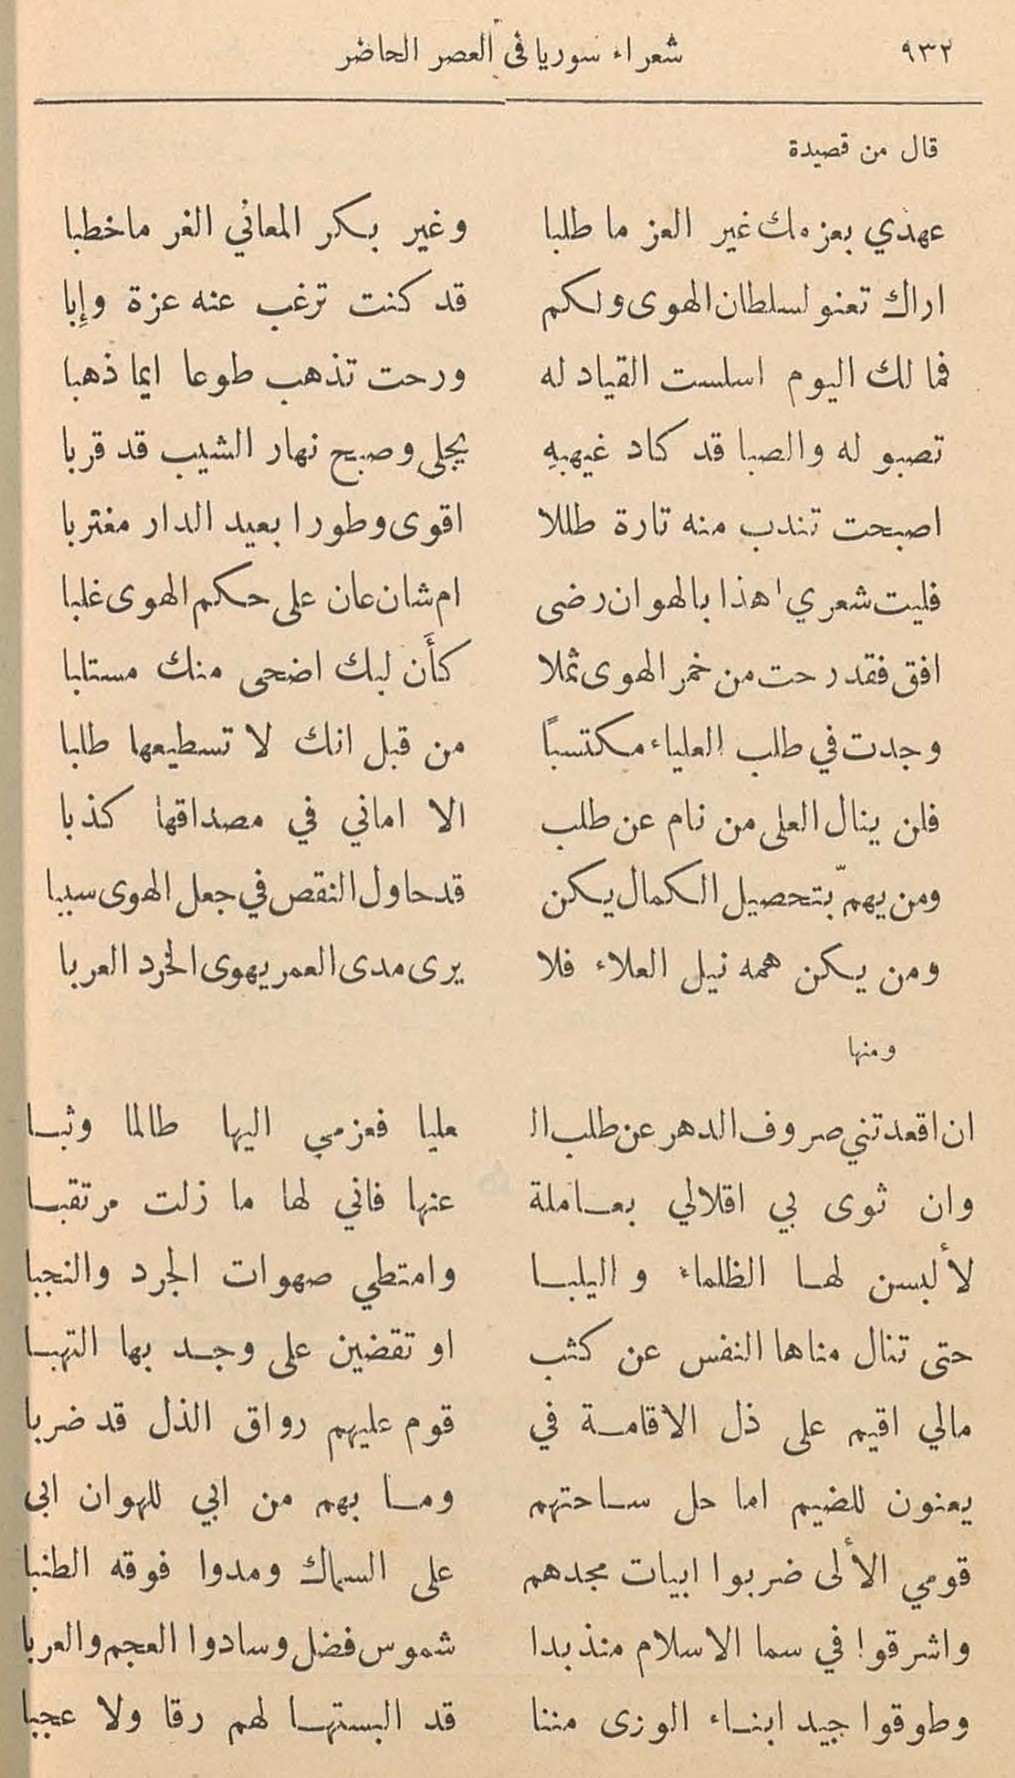 ٩٣٢ شعراء سوريا في العصر الحاضر
قال من قصيدة
عهدي بعزمك غير العز ما طلبا وغير بكر المعاني الغر ما خطبا
اراك تعنو لسلطان الهوى ولكم قد كنت ترغب عنه عزة وإبا
فما لك اليوم اسلست القياد له ورحت تذهب طوعا ايما ذهبا
تصبو له والصبا قد كاد غيهبهِ يجلى وصبح نهار الشيب قد قربا
اصبحت تندب منه تارة طللا اقوى وطورا بعيد الدار مغتربا
فليت شعري اهذا بالهوان رضى ام شان عان على حكم الهوى غلبا
افق فقد رحت من خمر الهوى ثملا كأن لبك اضحى منك مستلبا
وجدت في طلب العلياء مكتسباً من قبل انك لا تسطيعها طلبا
فلن ينال العلى من نام عن طلب الا اماني في مصداقها كذبا
ومن يهمّ بتحصيل الكمال يكن قد حاول النقص في جعل الهوى سببا
ومن يكن همه نيل العلاء فلا يرى مدى العمر يهوى الخرد العربا
ومنها
ان اقعدتني صروف الدهر عن طلب ال عليا فعزمي اليها طالما وثبا
وان ثوى بي اقلالي بعاملة عنها فاني لها ما زلت مرتقبا
لألبسن لها الظلماء واليلبا وامتطي صهوات الجرد والنجبا
حتى تنال مناها النفس عن كثب او تقضين على وجد بها التهبا
مالي اقيم على ذل الاقامة في قوم عليهم رواق الذل قد ضربا
يعنون للضيم اما حل ساحتهم وما بهم من ابي للهوان ابى
قومي الألى ضربوا ابيات مجدهم على السماك ومدوا فوقه الطنبا
واشرقوا في سما الاسلام منذ بدا شموس فضل وسادوا العجم والعربا
وطوقوا جيد ابناء الورى مننا قد البستها لهم رقا ولا عجبا